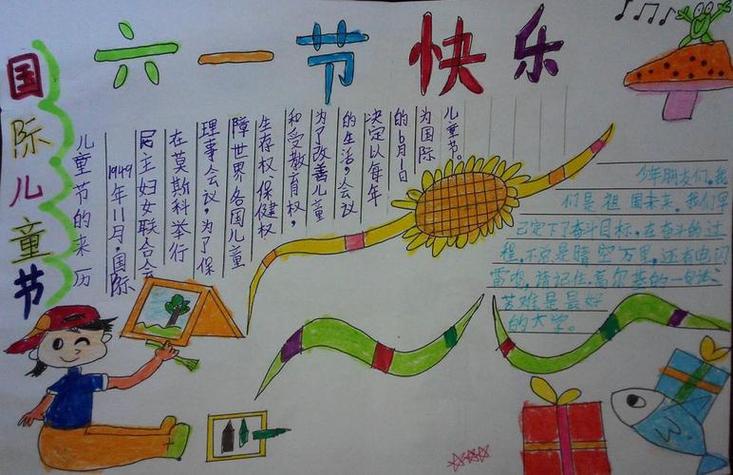 六一节快乐
国际儿童节
儿童节的来历
1949年11月,国际
民主妇女联合会
在莫斯科举行
理事会议,为了保
障世界各国儿童
生存权,保健权
和受教育权,
为了改善儿童
的生活,会议
决定以每年
的6月1日
为国际
儿童节。
少年朋友们,我
们是祖国未来,我们早
已定下了奋斗目标,在奋斗的过
程,不总是晴空万里,还有电闪
雷鸣,请记住,高尔基的一句话:
苦难是最好
的大学。